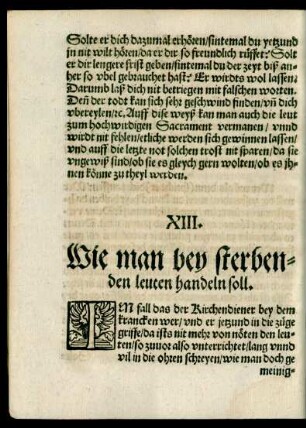 Solte er dich dazumal erhören/sintemal du yetzund
jn nit wilt hören/da er dir so freundlich rüffet: Solt
er dir lengere frist geben/sintemal du der zeyt biß an-
her so vbel gebrauchet hast: Er wirdts wol lassen.
Darumb laß dich nit betriegen mit falschen worten.
Deñ der todt kan sich sehr geschwind finden/vñ dich
vbereylen/rc. Auff dise weyß kan man auch die leut
zum hochwirdigen Sacrament vermanen/vnnd
wirdt nit fehlen/etliche werden sich gewinnen lassen/
vnd auff die letzte not solchen trost nit sparen/da sie
vngewiß sind/ob sie es gleych gern wolten/ob es jh-
nen könne zu theyl werden.
XIII.
Wie man bey sterben-
den leuten handeln soll.
IM fall das der Kirchendiener bey dem
krancken wer/vnd er jetzund in die züge
griffe/da ists nit mehr von nöten den leu-
ten/so zuuor also vnterrichtet/lang vnnd
vil in die ohren schreyen/wie man doch ge
meinig-